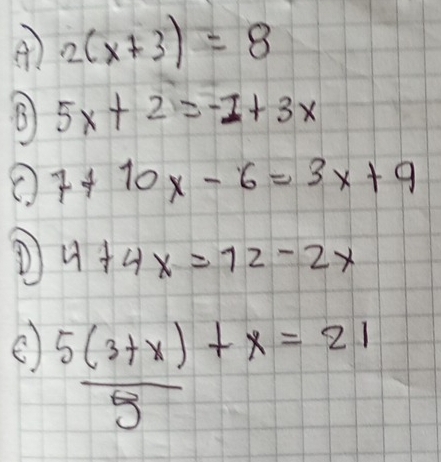 A) 2(x+3) = 8
B) 5x + 2 = -1 + 3x
C) 7 + 10x - 6 = 3x + 9
D) 4 + 4x = 12 - 2x
E) 5(3+x) + x = 21
5